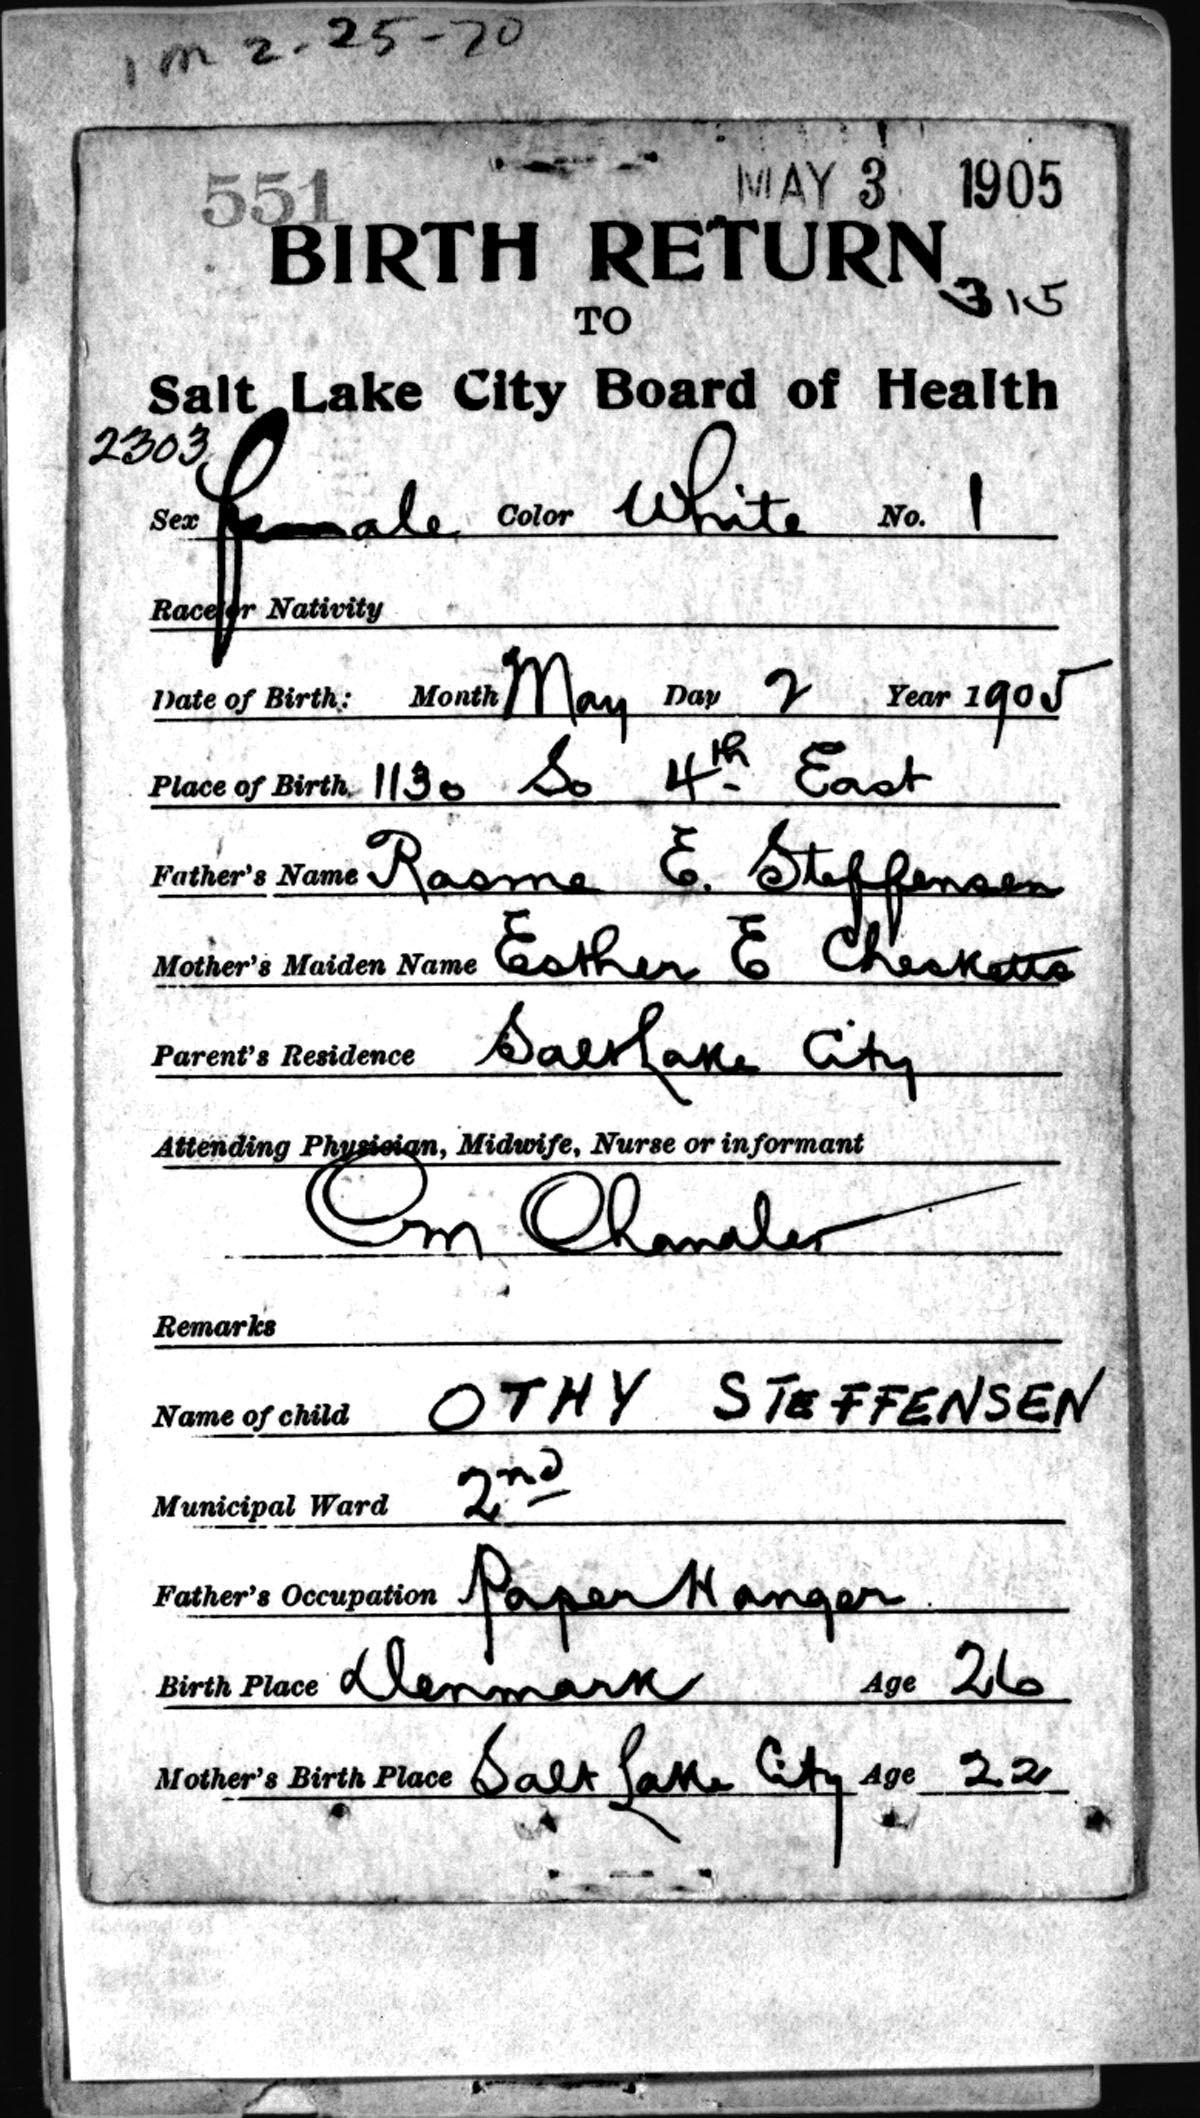 1 m 2-25-70
551 MAY 3 1905
BIRTH RETURN
315
TO
Salt Lake City Board of Health
2303
Sex female Color White No. 1
Race or Nativity
Date of Birth: Month May Day 2 Year 1905
Place of Birth 1130 So 4th East
Father's Name Rasme E. Steffensen
Mother's Maiden Name Esther E Chesketts
Parent's Residence Salt Lake City
Attending Physician, Midwife, Nurse or informant
Cm Chandler
Remarks
Name of child OTHY STEFFENSEN
Municipal Ward 2nd
Father's Occupation Paper Hanger
Birth Place Denmark Age 26
Mother's Birth Place Salt Lake City Age 22